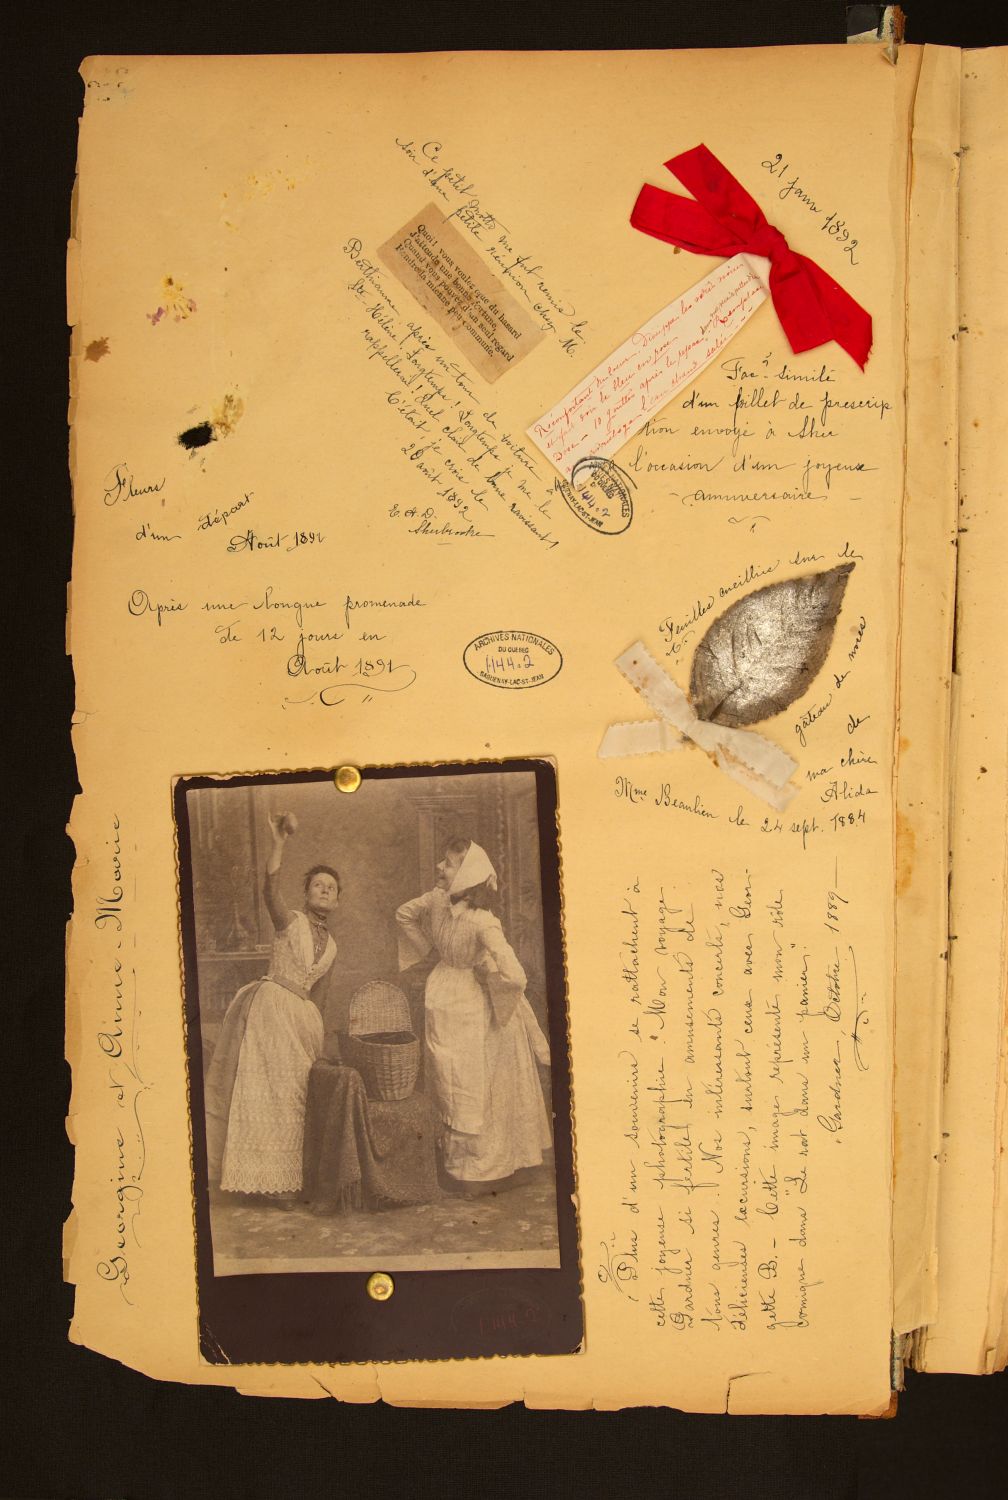 Ce petit motto me fut remis le
soir d'une petite réunion chez M.
Quoi! vous voulez que du hasard
J'attende une bonne fortune,
Quand vous pouvez d'un seul regard
Rendre la mienne peu commune.
Berthiaume après un tour de voiture à
Ste Hélène. Longtemps! Longtemps je me le
rappellerai! Quel clair de lune ravissant!
C'était je crois le
20 août 1892
E. A. D.
Sherbrooke
21 janv 1892
Réconfortant du coeur. Développe les
et fait voir le bleu en rose
Dose - 10 gouttes après le repas.
Fac-similé
d'un billet de prescrip
tion envoyé à Sher
l'occasion d'un joyeux
- anniversaire -
ARCHIVES NATIONALES
DU QUÉBEC
P144.2
SAGUENAY-LAC-ST-JEAN
Fleurs
d'un départ
Août 1891
Après une longue promenade
de 12 jours en
Août 1891
ARCHIVES NATIONALES
DU QUÉBEC
P144.2
SAGUENAY-LAC-ST-JEAN
Feuilles cueillies sur le
gâteau de noces
de
ma chère
Alida
Mme Beaulieu le 24 sept. 1884
Georgine et Aimée-Marie
Plus d'un souvenirs se rattachent à
cette joyeuse photographie. Mon voyage
Gardner si fertile en amusements de
tous genres. Nos intéressants concerts, nos
délicieuses excursions, surtout ceux avec Geor-
gette B. - Cette image représente mon rôle
comique dans "Le rat dans un panier."
Gardner, Octobre 1889
P144-2